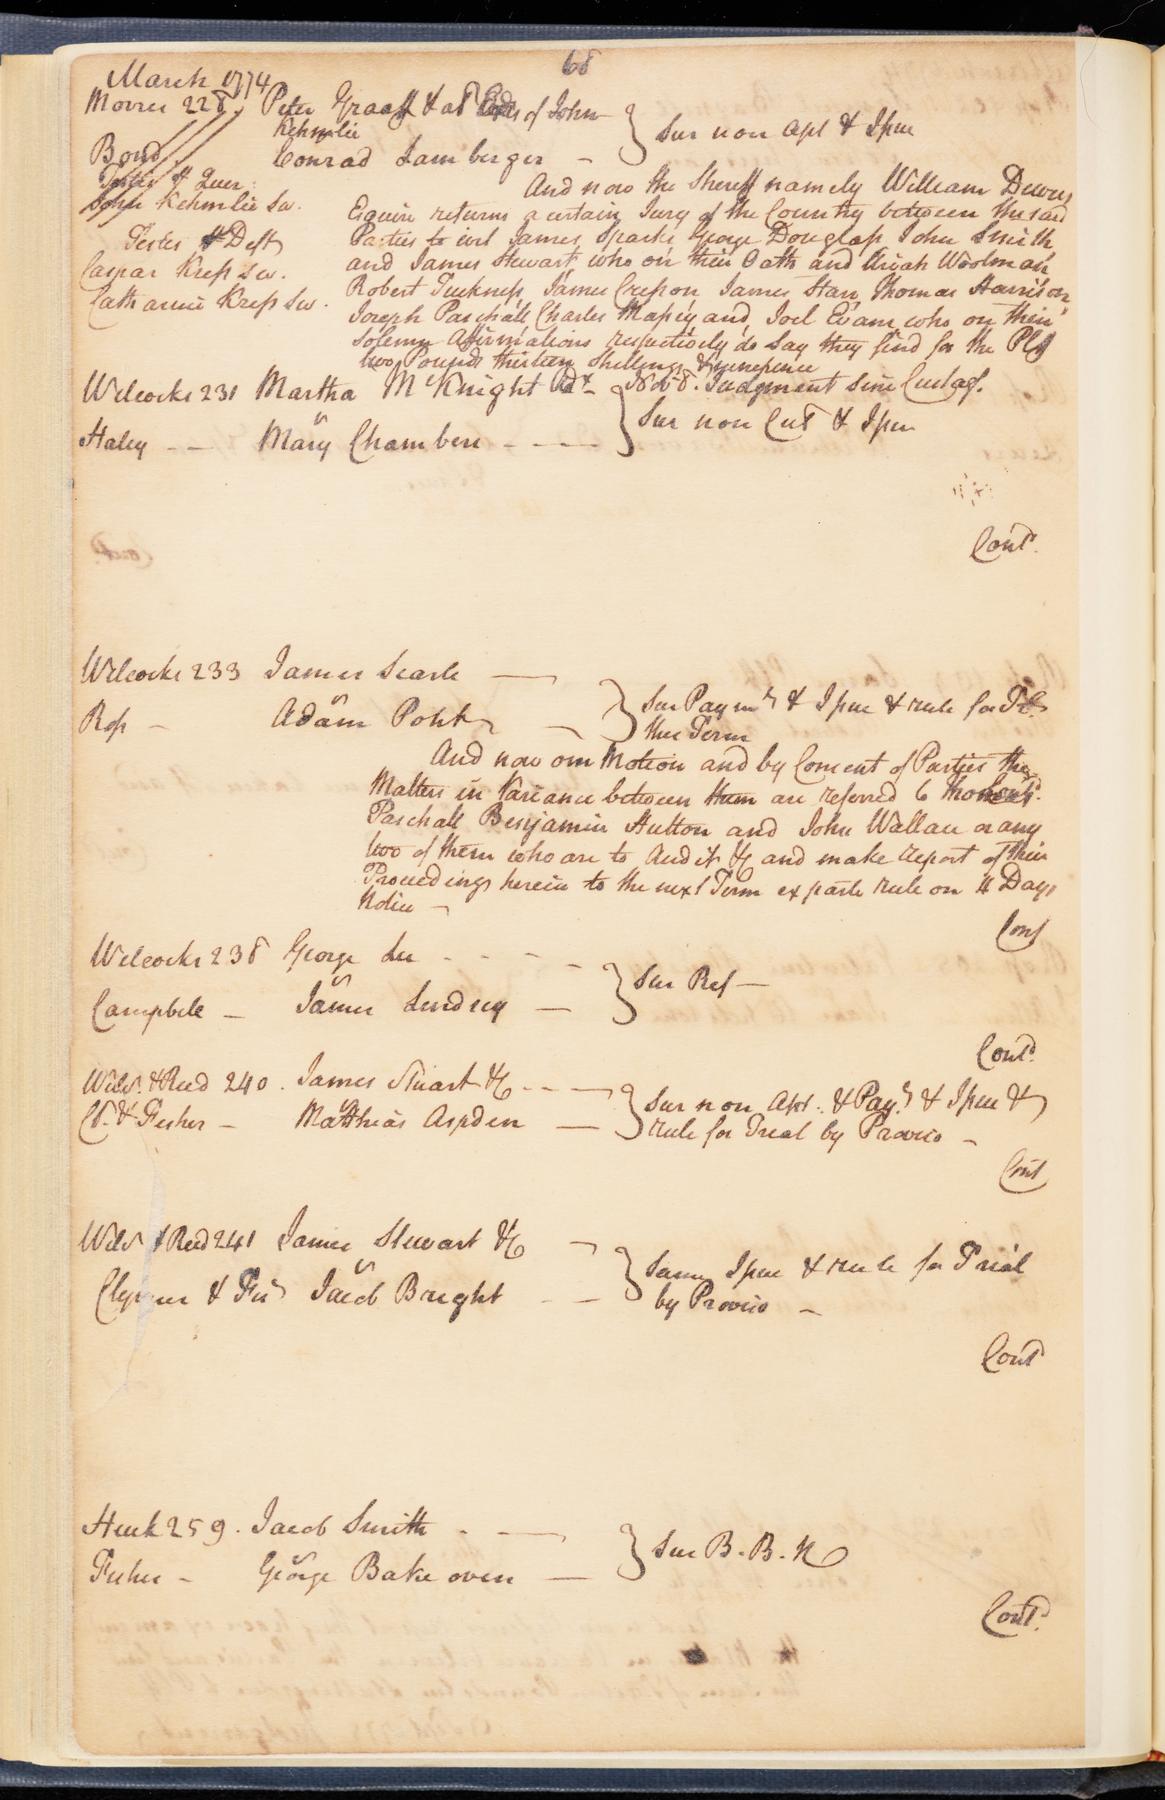 68
March 1774
Morris 228. Peter Graaff & al Exrs of John
Kehmlie
Bond Conrad Lamberger - } Sur non Apl & Issue
Testes Quer
John Kehmlie Sw. And now the Sheriff namely William Dewees
Esquire returns a certain Jury of the Country between the said
Testes Deft Parties to wit James Sparks George Douglass John Smith
Caspar Kress sw. and James Stewart who on their Oaths and Uriah Woolman
Catharine Kress Sw. Robert Tuckness James Cresson James Starr Thomas Harrison
Joseph Paschall Charles Massey and Joel Evans who on their
Solemn Affirmations respectively do say they find for the Plf
two Pounds thirteen Shillings & ninepence
Judgment sine Custag.
Wilcocks 231 Martha McKnight Adx -
v } Sur non Cul & Issue
Haley -- Mary Chambers ----
Contd.
Wilcocks 233 James Searle -
v } Sur Paymt & Issue & rule for Tl
Ross - Adam Poht - this Term
And now on Motion and by Consent of Parties the
Matters in Variance between them are referred to
Paschall Benjamin Hutton and John Wallace or any
two of them who are to Audit &c and make report of their
Proceedings herein to the next Term ex parte rule on 4 Days
Notice -
Cont
Wilcocks 238 George Lee - - - -
v } Sur Ref -
Campbele - James Lindsey -
Contd.
Wilc. & Reed 240. James Stuart &c - - -
v } Sur non Apl. & Payt & Issue &
Cl. & Fisher - Matthias Aspden - rule for Trial by Proviso -
Cont
Wilc & Reed 241 James Stewart &c -
v } Same Issue & rule for Trial
Clymer & Fis Jacob Bright - - by Proviso -
Contd
Huck 259. Jacob Smith - -
v } Sur B. B. N
Fisher - George Bake oven -
Contd.